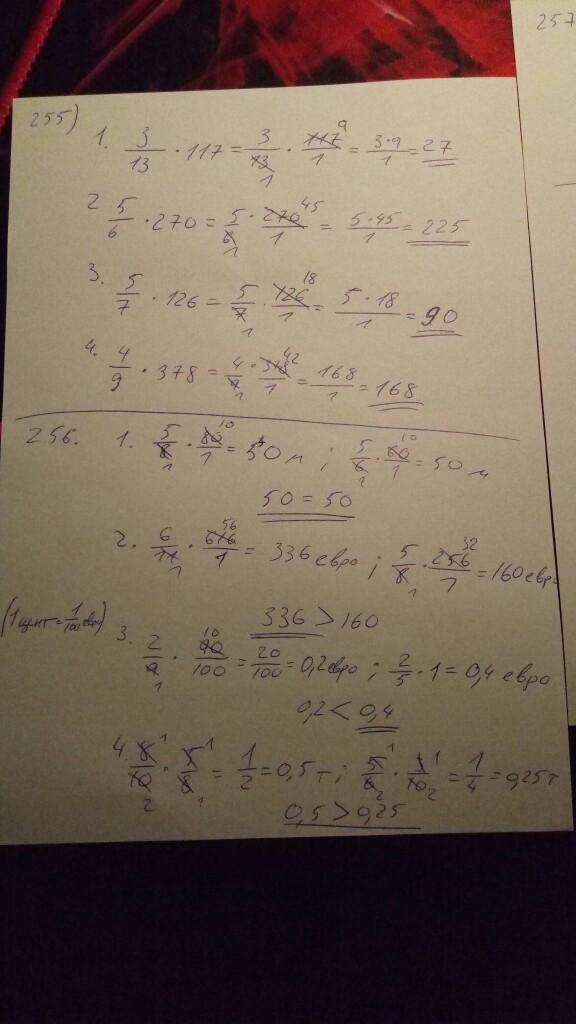 257
255)
1. 3/13 · 117 = 3/13 1 · 117 9/1 = 3·9/1 = 27
2 5/6 · 270 = 5/6 1 · 270 45/1 = 5·45/1 = 225
3. 5/7 · 126 = 5/7 1 · 126 18/1 = 5·18/1 = 90
4. 4/9 · 378 = 4/9 1 · 378 42/1 = 168/1 = 168
256. 1. 5/8 1 · 80 10/1 = 50 м ; 5/6 1 · 60 10/1 = 50 м
50 = 50
2. 6/11 1 · 616 56/1 = 336 евро ; 5/8 1 · 256 32/1 = 160 евро
336 > 160
(1 цент = 1/100 евро)
3. 2/9 1 · 90 10/100 = 20/100 = 0,2 евро ; 2/5 · 1 = 0,4 евро
0,2 < 0,4
4. 8 1/10 2 · 5 1/8 1 = 1/2 = 0,5 т ; 5 1/6 2 · 3 1/10 2 = 1/4 = 0,25 т
0,5 > 0,25